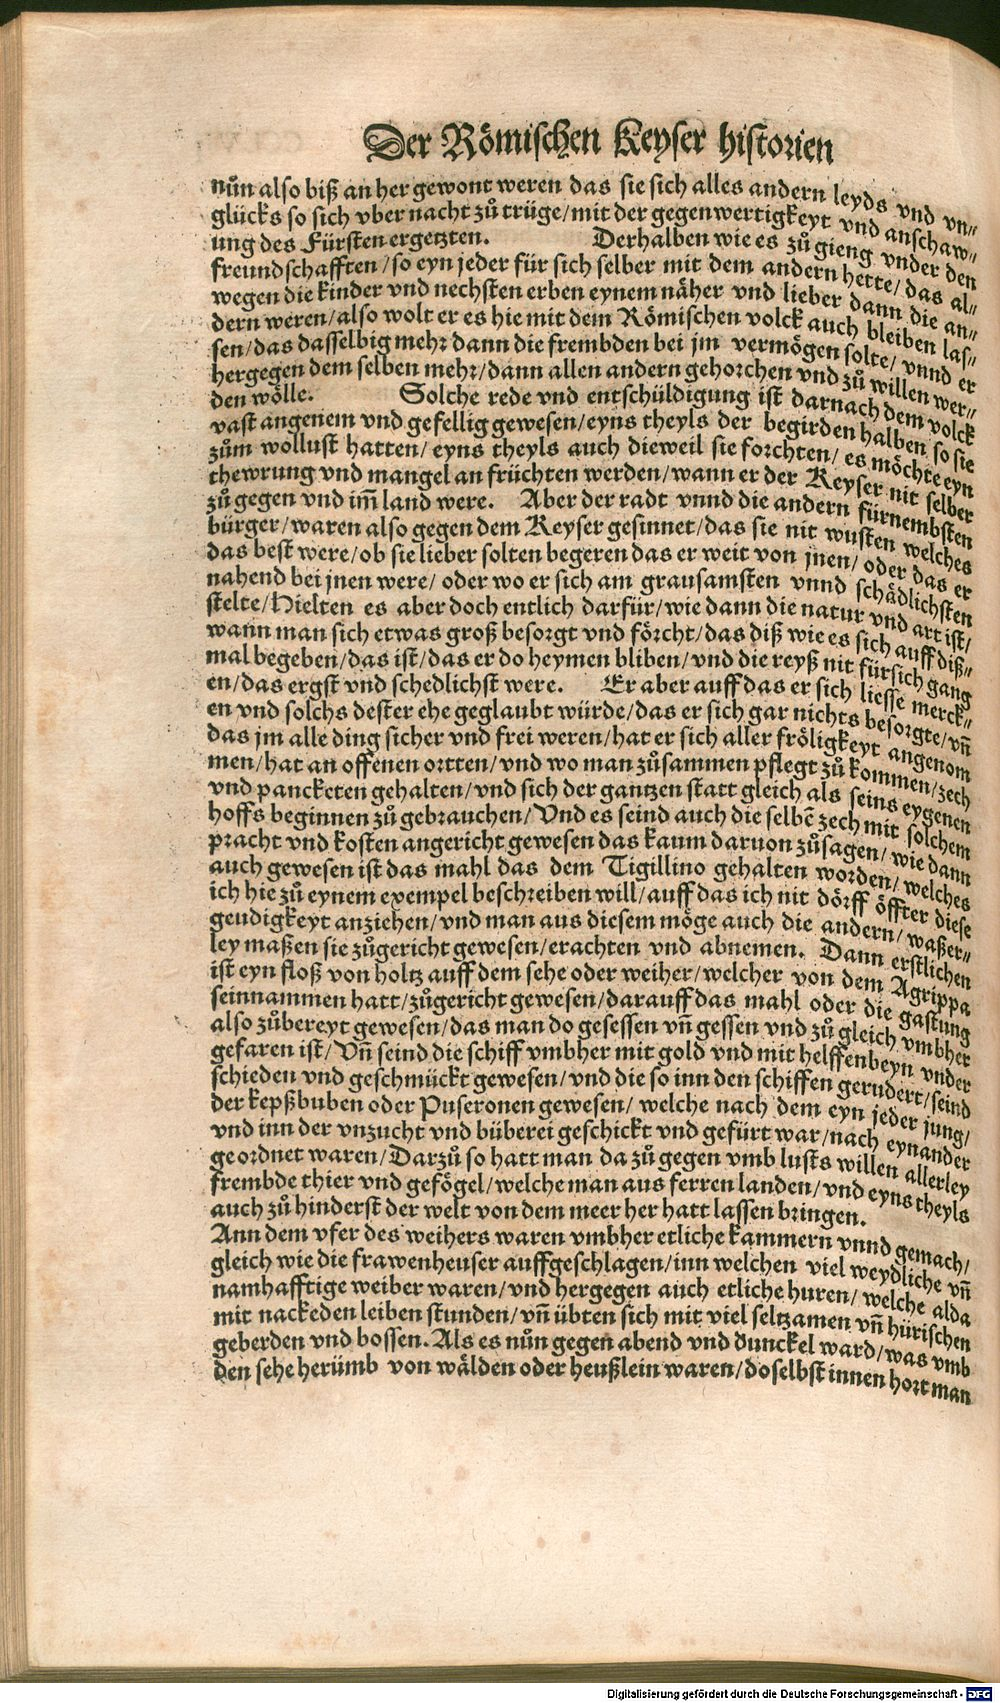 Der Römischen Keyser historien
nůn also biß anher gewont weren das sie sich alles andern leyds vnd vn⸗
glücks so sich vber nacht zů trüge/mit der gegenwertigkeyt vnd anschaw⸗
ung des Fürsten ergetzten. Derhalben wie es zů gieng vnder den
freundschafften/so eyn jeder für sich selber mit dem andern hette/das al⸗
wegen die kinder vnd nechsten erben eynem näher vnd lieber dann die an⸗
dern weren/also wolt er es hie mit dem Römischen volck auch bleiben las⸗
sen/das dasselbig mehr dann die frembden bei jm vermögen solte/vnnd er
hergegen dem selben mehr/dann allen andern gehorchen vnd zů willen wer⸗
den wölle. Solche rede vnd entschüldigung ist darnach dem volck
vast angenem vnd gefellig gewesen/eyns theyls der begirden halben so sie
zům wollust hatten/eyns theyls auch dieweil sie forchten/es möchte eyn
thewrung vnd mangel an früchten werden/wann er der Keyser nit selber
zů gegen vnd im̃ land were. Aber der radt vnnd die andern fürnembsten
bürger/waren also gegen dem Keyser gesinnet/das sie nit wusten welches
das best were/ob sie lieber solten begeren das er weit von jnen/oder das er
nahend bei jnen were/oder wo er sich am grausamsten vnnd schädlichsten
stelte/Hielten es aber doch entlich darfür/wie dann die natur vnd art ist/
wann man sich etwas groß besorgt vnd förcht/das diß wie es sich auff diß⸗
mal begeben/das ist/das er do heymen bliben/vnd die reyß nit fürsich gang
en/das ergst vnd schedlichst were. Er aber auff das er sich liesse merck⸗
en vnd solchs dester ehe geglaubt würde/das er sich gar nichts besorgte/vñ
das jm alle ding sicher vnd frei weren/hat er sich aller fröligkeyt angenom
men/hat an offenen ortten/vnd wo man zůsammen pflegt zů kommen/zech
vnd pancketen gehalten/vnd sich der gantzen statt gleich als seins eygenen
hoffs beginnen zů gebrauchen/Vnd es seind auch die selbẽ zech mit solchem
pracht vnd kosten angericht gewesen das kaum daruon zůsagen/wie dann
auch gewesen ist das mahl das dem Tigillino gehalten worden/welches
ich hie zů eynem exempel beschreiben will/auff das ich nit dörff öffter diese
geudigkeyt anziehen/vnd man aus diesem möge auch die andern/waßer⸗
ley maßen sie zůgericht gewesen/erachten vnd abnemen. Dann erstlichen
ist eyn floß von holtz auff dem sehe oder weiher/welcher von dem Agrippa
seinnammen hatt/zůgericht gewesen/darauff das mahl oder die gastung
also zůbereyt gewesen/das man do gesessen vñ gessen vnd zů gleich vmbher
gefaren ist/Vñ seind die schiff vmbher mit gold vnd mit helffenbeyn vnder
schieden vnd geschmückt gewesen/vnd die so inn den schiffen gerudert/seind
der kepßbuben oder Puseronen gewesen/welche nach dem eyn jeder jung/
vnd inn der vnzucht vnd büberei geschickt vnd gefürt war/nach eynander
geordnet waren/Darzů so hatt man da zů gegen vmb lusts willen allerley
frembde thier vnd gefögel/welche man aus ferren landen/vnd eyns theyls
auch zů hinderst der welt von dem meer her hatt lassen bringen.
Ann dem vfer des weihers waren vmbher etliche kammern vnnd gemach/
gleich wie die frawenheuser auffgeschlagen/inn welchen viel weydliche vñ
namhafftige weiber waren/vnd hergegen auch etliche huren/welche alda
mit nackeden leiben stunden/vñ übten sich mit viel seltzamen vñ hürischen
geberden vnd bossen. Als es nůn gegen abend vnd dunckel ward/was vmb
den sehe herümb von wälden oder heußlein waren/doselbst innen hort man
Digitalisierung gefördert durch die Deutsche Forschungsgemeinschaft - DFG